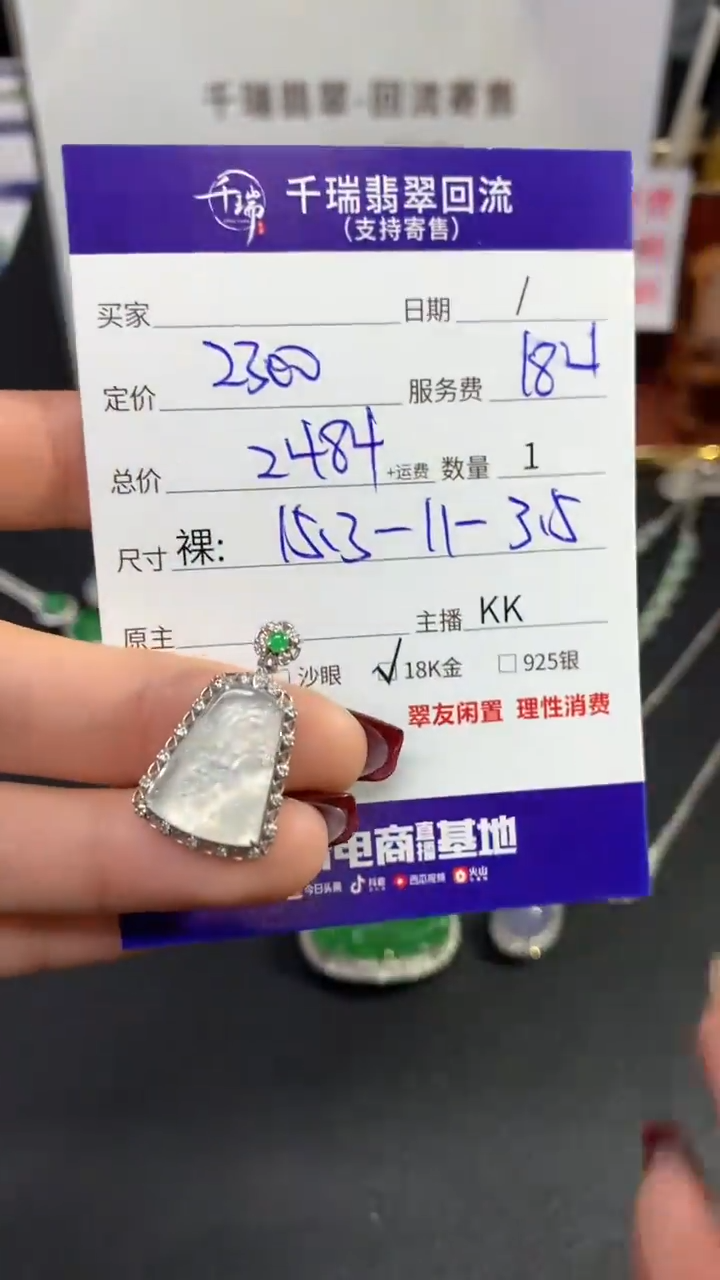 千瑞翡翠·回流寄售
千瑞 千瑞翡翠回流
(支持寄售)
买家 日期 /
定价 2300 服务费 184
总价 2484 +运费 数量 1
尺寸 裸: 15.3-11-3.5
原主 主播 KK
沙眼 ✓ 18K金 □ 925银
翠友闲置 理性消费
电商直播基地
今日头条 抖音 西瓜视频 火山